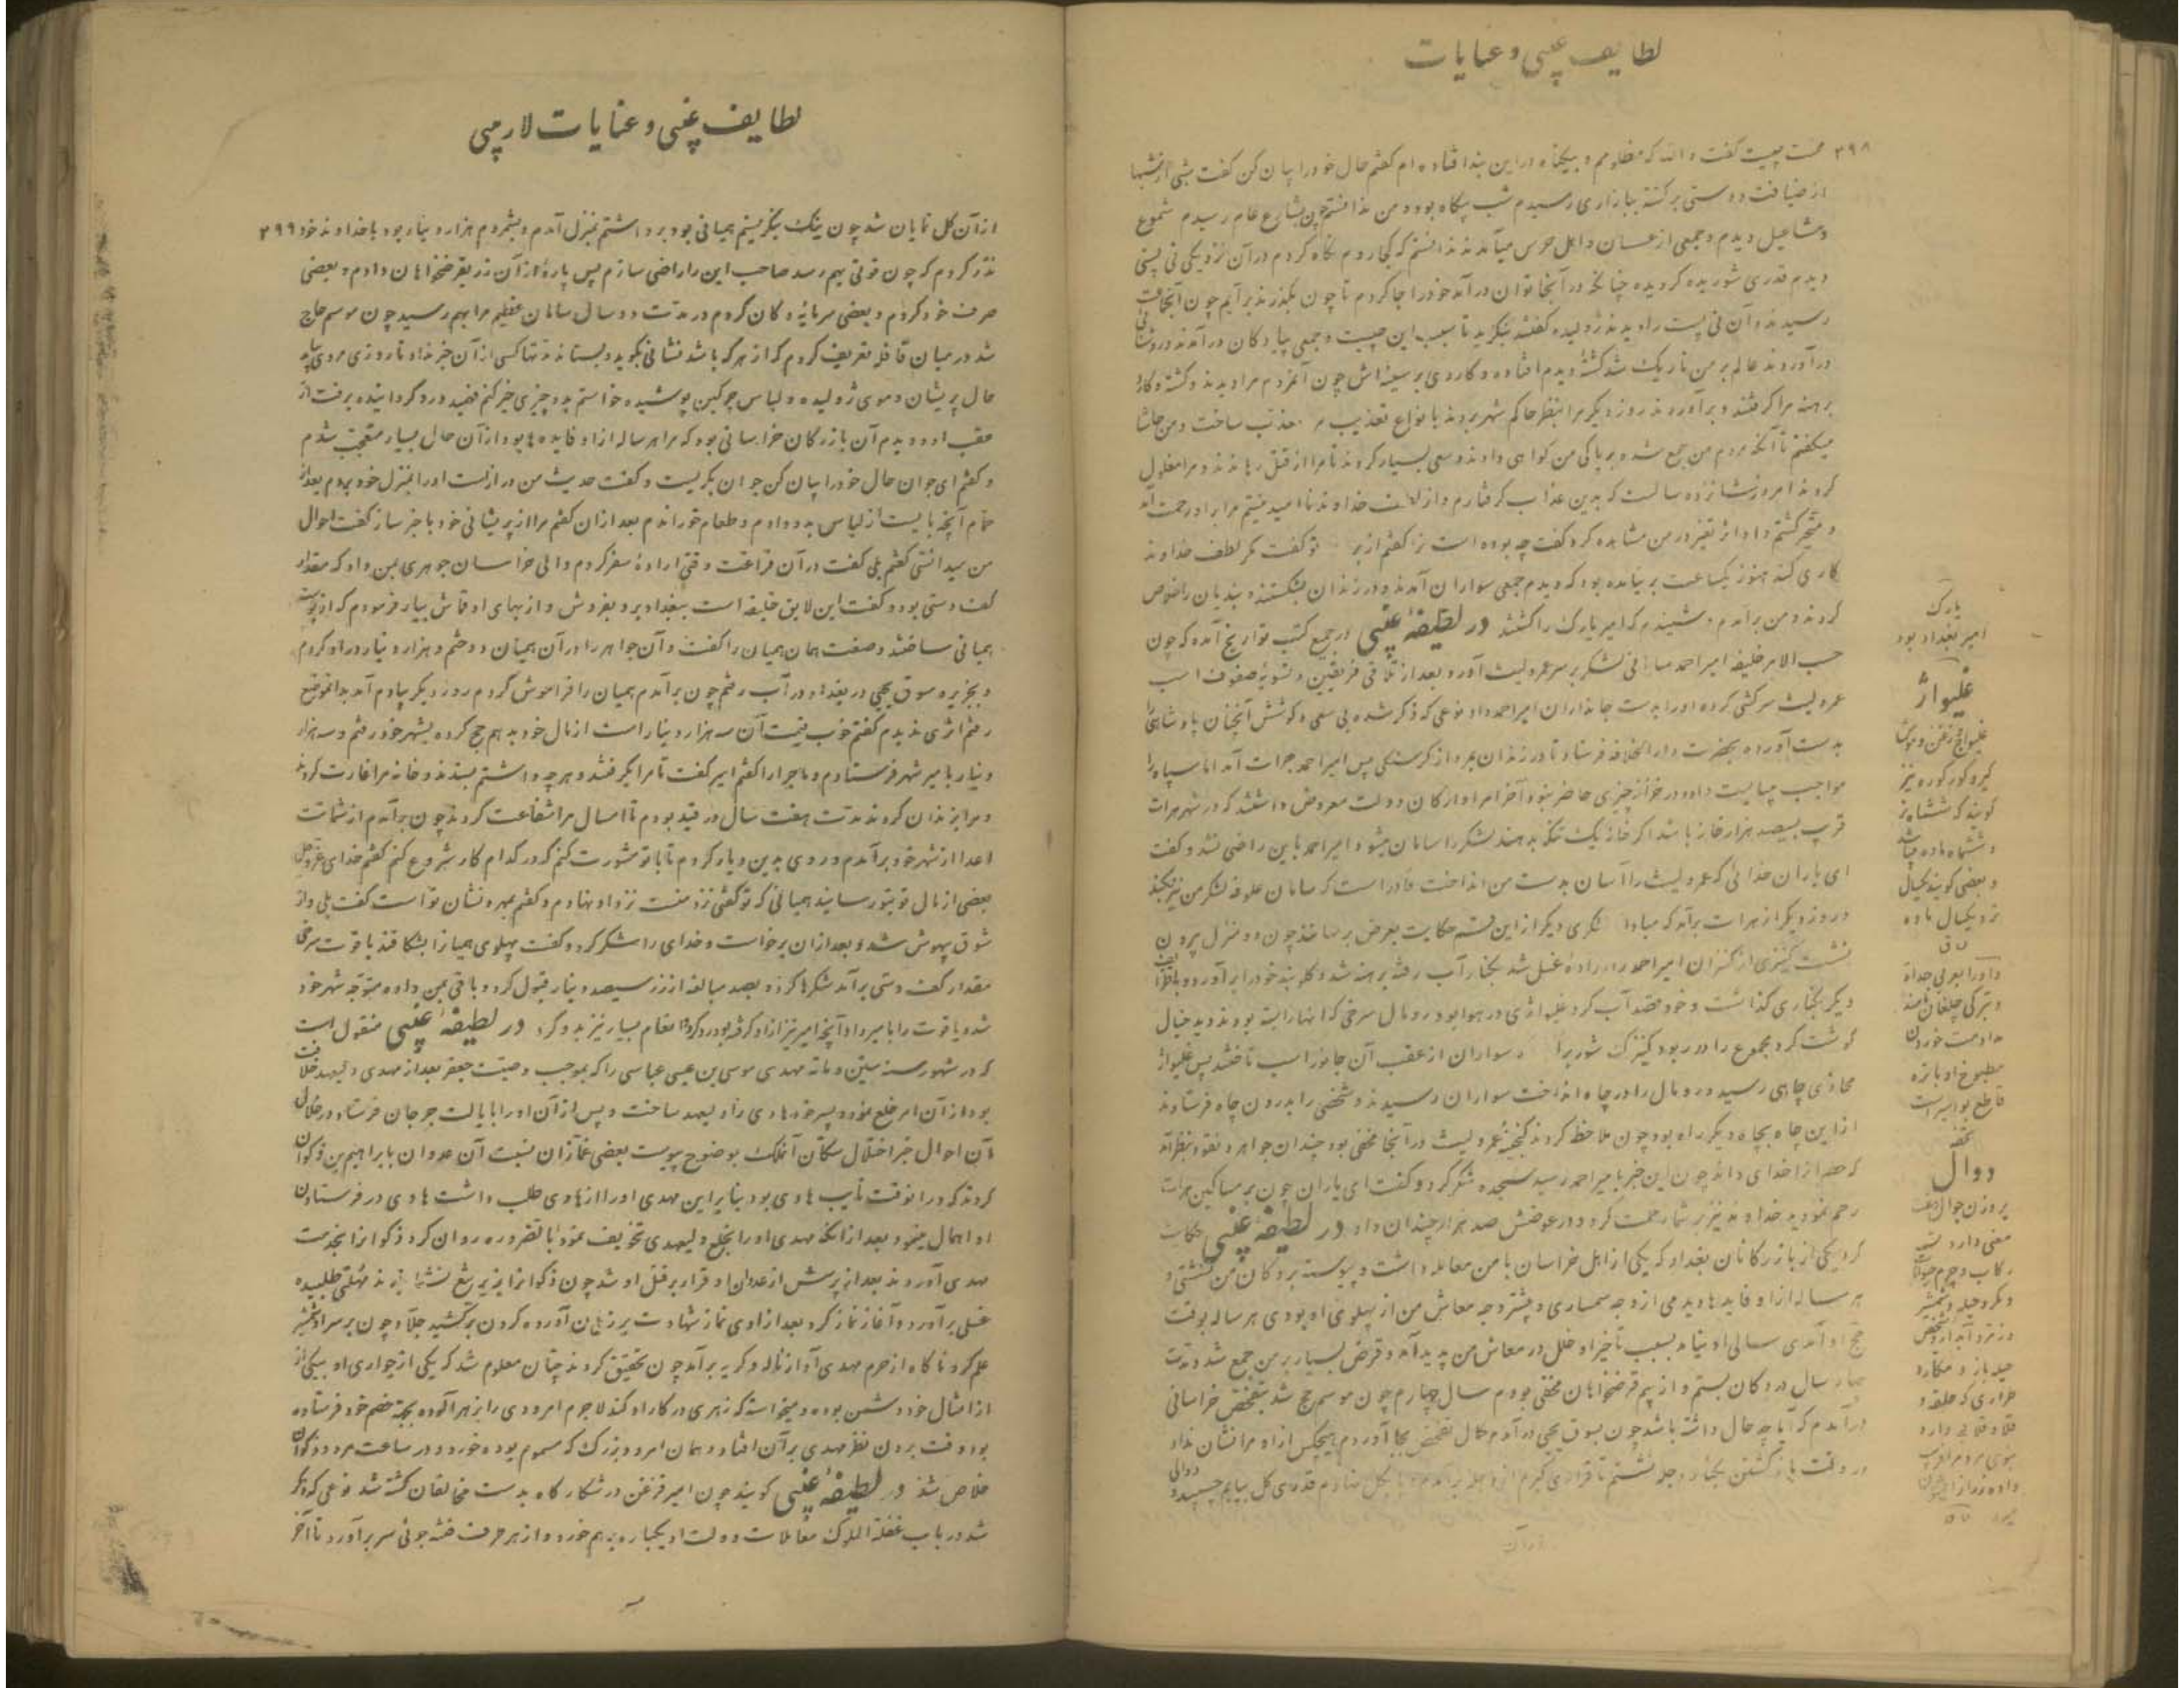 لطایف غیبی و عنایات
۳۹۸ محنت چیست گفت والله که مظلومم و بیگناه در این بند افتاده ام گفتم حال خود را بیان کن گفت شبی از شبها
از ضیافت دوستی برگشته ببازاری رسیدم شب بیگاه بود و من ندانستم چون بشارع عام رسیدم شموع
و مشاعیل دیدم و جمعی از عسسان و اهل حرس میآمدند ندانستم که کجا روم نگاه کردم در آن نزدیکی نی بستی
دیدم قدری شوریده گردیده چنانکه در آنجا توان در آمد خود را جا کردم تا چون بگذرند بر آیم چون آنجماعت
رسیدند و آن نی بست را دیدند ژولیده گفتند بنگرید تا سبب این چیست و جمعی پیادگان در آمدند و روشنائی
در آوردند عالم بر من تاریک شد کشتۀ دیدم افتاده و کاردی بر سینه اش چون آنمردم مرا دیدند و کشته و کارد
برهنه مرا گرفتند و برآوردند روز دیگر مرا بنظر حاکم شهر بردند بانواع تعذیب معذب ساخت و من حاشا
میگفتم تا آنکه مردم من جمع شده بر پاکی من گواهی دادند و سعی بسیار کردند تا مرا از قتل رهاندند و مرا مغلول
کردند امروز شانزده سالست که بدین عذاب گرفتارم و از لطف خداوند ناامید نیستم مرا بر او رحمت آمد
و متحیر گشتم و او اثر تغیر در من مشاهده کرد گفت چه بوده است ترا گفتم از بر تو گفت مگر لطف خداوند
کاری کند هنوز یکساعت بر نیامده بود که دیدم جمعی سواران آمدند و در زندان بشکستند و بندیان را خلاص
کردند و من برآمدم و شنیدم که امیر یارک را کشتند در لطیفۀ غیبی در جمیع کتب تواریخ آمده که چون
حسب الامر خلیفه امیر احمد سامانی لشکر بر سر عمرو لیث آورد بعد از تلاقی فریقین و تسویۀ صفوف اسب
عمرو لیث سرکشی کرده او را بدست جانداران امیر احمد داد نوعی که ذکر شده بی سعی و کوشش آنچنان پادشاهی را
بدست آورده بحضرت دار الخلافه فرستاد تا در زندان بمرد از گرسنگی پس امیر احمد بهرات آمد اما سپاه را
مواجب میبایست داد و در خزانه چیزی حاضر نبود آخر امرا و ارکان دولت معروض داشتند که در شهر هرات
قریب بسیصد هزار خانه باشد اگر خانۀ یک تنگه بدهند لشکر را سامان میشود امیر احمد باین راضی نشد و گفت
ای یاران خدائی که عمرو لیث را آسان بدست من انداخت قادر است که سامان علوفۀ لشکر من نیز بکند
و روز دیگر از هرات برآمد که مبادا لشکری دیگر از این قسم حکایت بعرض برسانند چون دو منزل بیرون
نشست کنیزی از کنیزان امیر احمد را ارادۀ غسل شد بکنار آب رفته برهنه شد و گلوبند خود را برآورد و بطرف
دیگر بکناری گذاشت و خود قصد آب کرد غلیواژی در هوا بود رومال سرخی که آنها را بسته بودند دید خیال
گوشت کرد مجموع را در ربود کنیزک شور برآ و سواران از عقب آن جانور اسب تاختند پس غلیواژ
محاذی چاهی رسید و رومال را در چاه انداخت سواران رسیدند و شخصی را بدرون چاه فرستادند
از این چاه بچاه دیگر راه بود چون ملاحظه کردند گنجینۀ عمرو لیث در آنجا مخفی بود چندان جواهر و نقود بنظر آمد
که حد آنرا خدای داند چون این خبر بامیر احمد رسید سجده شکر کرد و گفت ای یاران چون بر مساکین هرات
رحم نمودید خداوند نیز بر شما رحمت کرد و در عوضش صد هزار چندان داد در لطیفۀ غیبی حکایت
کرد یکی از بازرگانان بغداد که یکی از اهل خراسان با من معامله داشت و پیوسته بر دکان من نشستی و
هر ساله از او فایدها دیدمی از وجه سمساری و بیشتر وجه معاش من از پهلوی او بودی هر ساله بوقت
حج او آمدی سالی او نیامد بسبب تأخیر او خلل در معاش من پدید آمد و قرض بسیار بر من جمع شد و مدت
چهار سال در دکان بستم و از بیم قرضخواهان مخفی بودم سال چهارم چون موسم حج شد بتفحص خراسانی
درآمدم که آیا چه حال داشته باشد چون بسوق یحیی درآمدم کمال تفحص بجا آوردم هیچکس از او مرا نشان نداد
در وقت بازگشتن بکنار دجله نشستم تا قراری گیرم از دجله برآمدم و پا بگل نهادم قدری گل بپایم چسبید و دوالی
از آن
یارک
امیر بغداد بود
غلیواژ
غلیواج زغن و موش
گیر و کور کوره نیز
گویند که ششماه نر
و ششماه ماده میباشد
و بعضی گویند یکسال
نر و یکسال ماده
ق
و او را بعربی حداة
و بترکی چلغان نامند
مداومت خوردن
مطبوخ او با تره
قاطع بواسیر است
تحفه
دوال
بر وزن جوال
معنی دارد تسمه
رکاب و چرم حیوانات
و مکر و حیله و شمشیر
حیله باز و مکاره
لطایف غیبی و عنایات لاریبی
از آن گل نمایان شد چون نیک بنگریستم همیانی بود برداشتم بمنزل آمدم و بشمردم هزار دینار بود با خداوند خود ۳۹۹
نذر کردم که چون قوتی بهم رسد صاحب این را راضی سازم پس پارۀ از آن زر بقرضخواهان دادم و بعضی
صرف خود کردم و بعضی سرمایۀ دکان کردم در مدت دو سال سامان عظیم مرا بهم رسید چون موسم حاج
شد در میان قافله تعریف کردم که از هر که باشد نشانی بگوید و بستاند مدتها کسی از آن خبر نداد تا روزی مردی سیاه
حال پریشان و موی ژولیده و لباس چرکین پوشیده خواستم بدو چیزی خیر کنم نطلبید و رو گردانیده برفت از
عقب او دویدم آن بازرگان خراسانی بود که مرا هر ساله از او فایدها بود از آن حال بسیار متعجب شدم
و گفتم ای جوان حال خود را بیان کن جوان بگریست و گفت حدیث من درازست او را بمنزل خود بردم بعد از
حمام آنچه بایست از لباس بدو دادم و طعام خوراندم بعد از آن گفتم مرا از پریشانی خود با خبر ساز گفت احوال
من میدانستی گفتم بلی گفت در آن فراغت وقتی ارادۀ سفر کردم والی خراسان جوهری بمن داد که مقدار
کف دستی بود و گفت این لایق خلیفه است ببغداد برو بفروش و از بهای او قماش بیار فرمودم که از پوست
همیانی ساختند و صفت همان همیان را گفت و آن جواهر را در آن همیان دوختم و هزار دینار در او کردم
و بجزیره سوق یحیی در بغداد در آب رفتم چون برآمدم همیان را فراموش کردم روز دیگر بیادم آمد بدانموضع
رفتم اثری ندیدم گفتم خوب قیمت آن سه هزار دینار است از مال خود بدهم حج کرده بشهر خود رفتم و سه هزار
دینار بامیر شهر فرستادم و ماجرا را گفتم امیر گفت تا مرا بگرفتند و هر چه داشتم بستدند و خانه مرا غارت کردند
و مرا بزندان کردند مدت هفت سال در قید بودم تا امسال مرا شفاعت کردند چون برآمدم از شماتت
اعدا از شهر خود برآمدم و روی بدین دیار کردم تا با تو مشورت کنم که در کدام کار شروع کنم گفتم خدای عزوجل
بعضی از مال تو بتو رسانید همیانی که تو گفتی نزد منست نزد او نهادم و گفتم بمهر و نشان تو است گفت بلی و از
شوق بیهوش شد و بعد از آن برخاست و خدای را شکر کرد و گفت پهلوی همیان را بشکافند یاقوت سرخی
مقدار کف دستی برآمد شکرها کرد و بصد مبالغه از زر سیصد دینار قبول کرد و باقی بمن داده متوجه شهر خود
شد و یاقوت را بامیر داد آنچه امیر نیز از او گرفته بود رد کرد و انعام بسیار نیز بدو کرد در لطیفۀ غیبی منقول است
که در شهور سنۀ ستین و مائه مهدی موسی بن عیسی عباسی را که بموجب وصیت جعفر بعد از مهدی ولیعهد خلافت
بود از آن امر خلع نمود و پسر خود هادی را ولیعهد ساخت و پس از آن او را بایالت جرجان فرستاد در خلال
آن احوال خبر اختلال سکان آنملک بوضوح پیوست بعضی غمازان نسبت آن عدوان بابراهیم بن ذکوان
کردند که در آنوقت نایب هادی بود بنابر این مهدی او را از هادی طلب داشت هادی در فرستادن
او اهمال مینمود بعد از آنکه مهدی او را بخلع ولیعهدی تخویف نمود بالضروره روان کرد ذکوان را بخدمت
مهدی آوردند بعد از پرسش از عدوان او قرار بر قتل او شد چون ذکوان را بزیر تیغ نشاندند مهلتی طلبیده
غسلی برآورد و آغاز نماز کرد بعد از ادی نماز شهادت بر زبان آورده گردن برکشید جلاد چون بر سر او شمشیر
علم کرد ناگاه از حرم مهدی آواز ناله و گریه برآمد چون تحقیق کردند چنان معلوم شد که یکی از جواری او بیکی از
از امثال خود دشمن بوده و میخواسته که زهری در کار او کند لاجرم امرودی را بزهر آلوده بجهة خصم خود فرستاده
بود وقت بردن نظر مهدی بر آن افتاد و همان امرود بزرگ که مسموم بوده خورد و در ساعت مرد و ذکوان
خلاص شد در لطیفۀ غیبی گویند چون امیر قزغن در شکارگاه بدست مخالفان کشته شد نوعی که ذکر
شد در باب غفلة الملوک معاملات دولت او یکباره بهم خورد و از هر طرف فتنه جوئی سر برآورد تا آخر